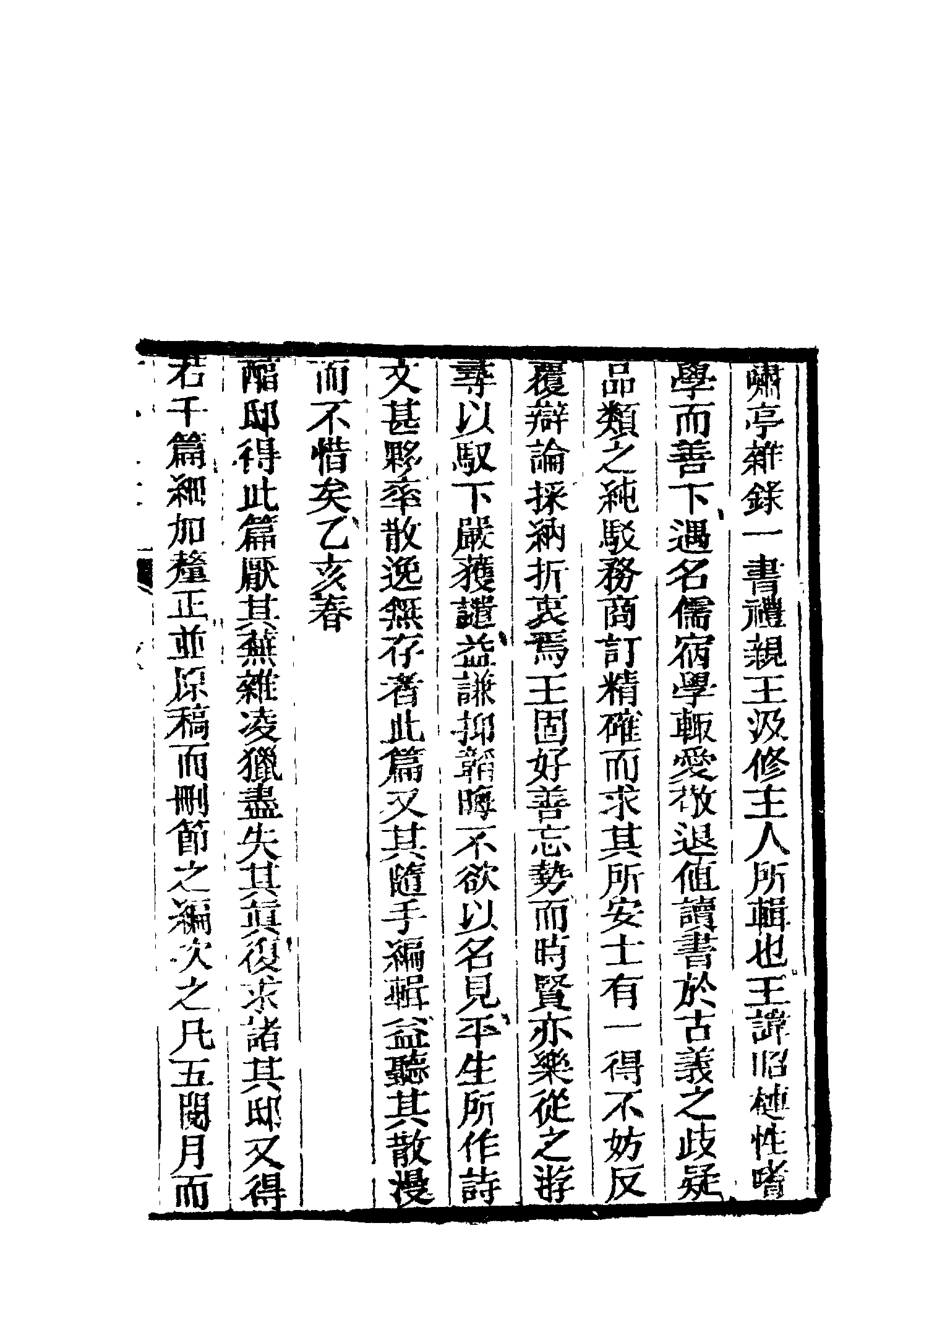 嘯亭雜錄一書禮親王汲修主人所輯也王諱昭槤性嗜
學而善下遇名儒宿學輒愛敬退值讀書於古義之歧疑
品類之純駁務商訂精確而求其所安士有一得不妨反
覆辯論採納折衷焉王固好善忘勢而時賢亦樂從之游
尋以馭下嚴獲譴益謙抑韜晦不欲以名見平生所作詩
文甚夥率散逸無存者此篇又其隨手編輯益聽其散漫
而不惜矣乙亥春
醕邸得此篇厭其蕪雜凌獵盡失其眞復求諸其邸又得
若干篇細加釐正並原稿而刪節之編次之凡五閱月而